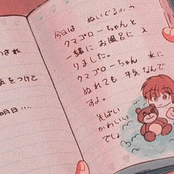 今日は ぬいぐるみの
クマゴローちゃんと
一緒に お風呂に 入
りました。
クマゴローちゃん 水に
ぬれても 平気 なんで
すよ。
かわいい
でしょ
をつけて
明日…